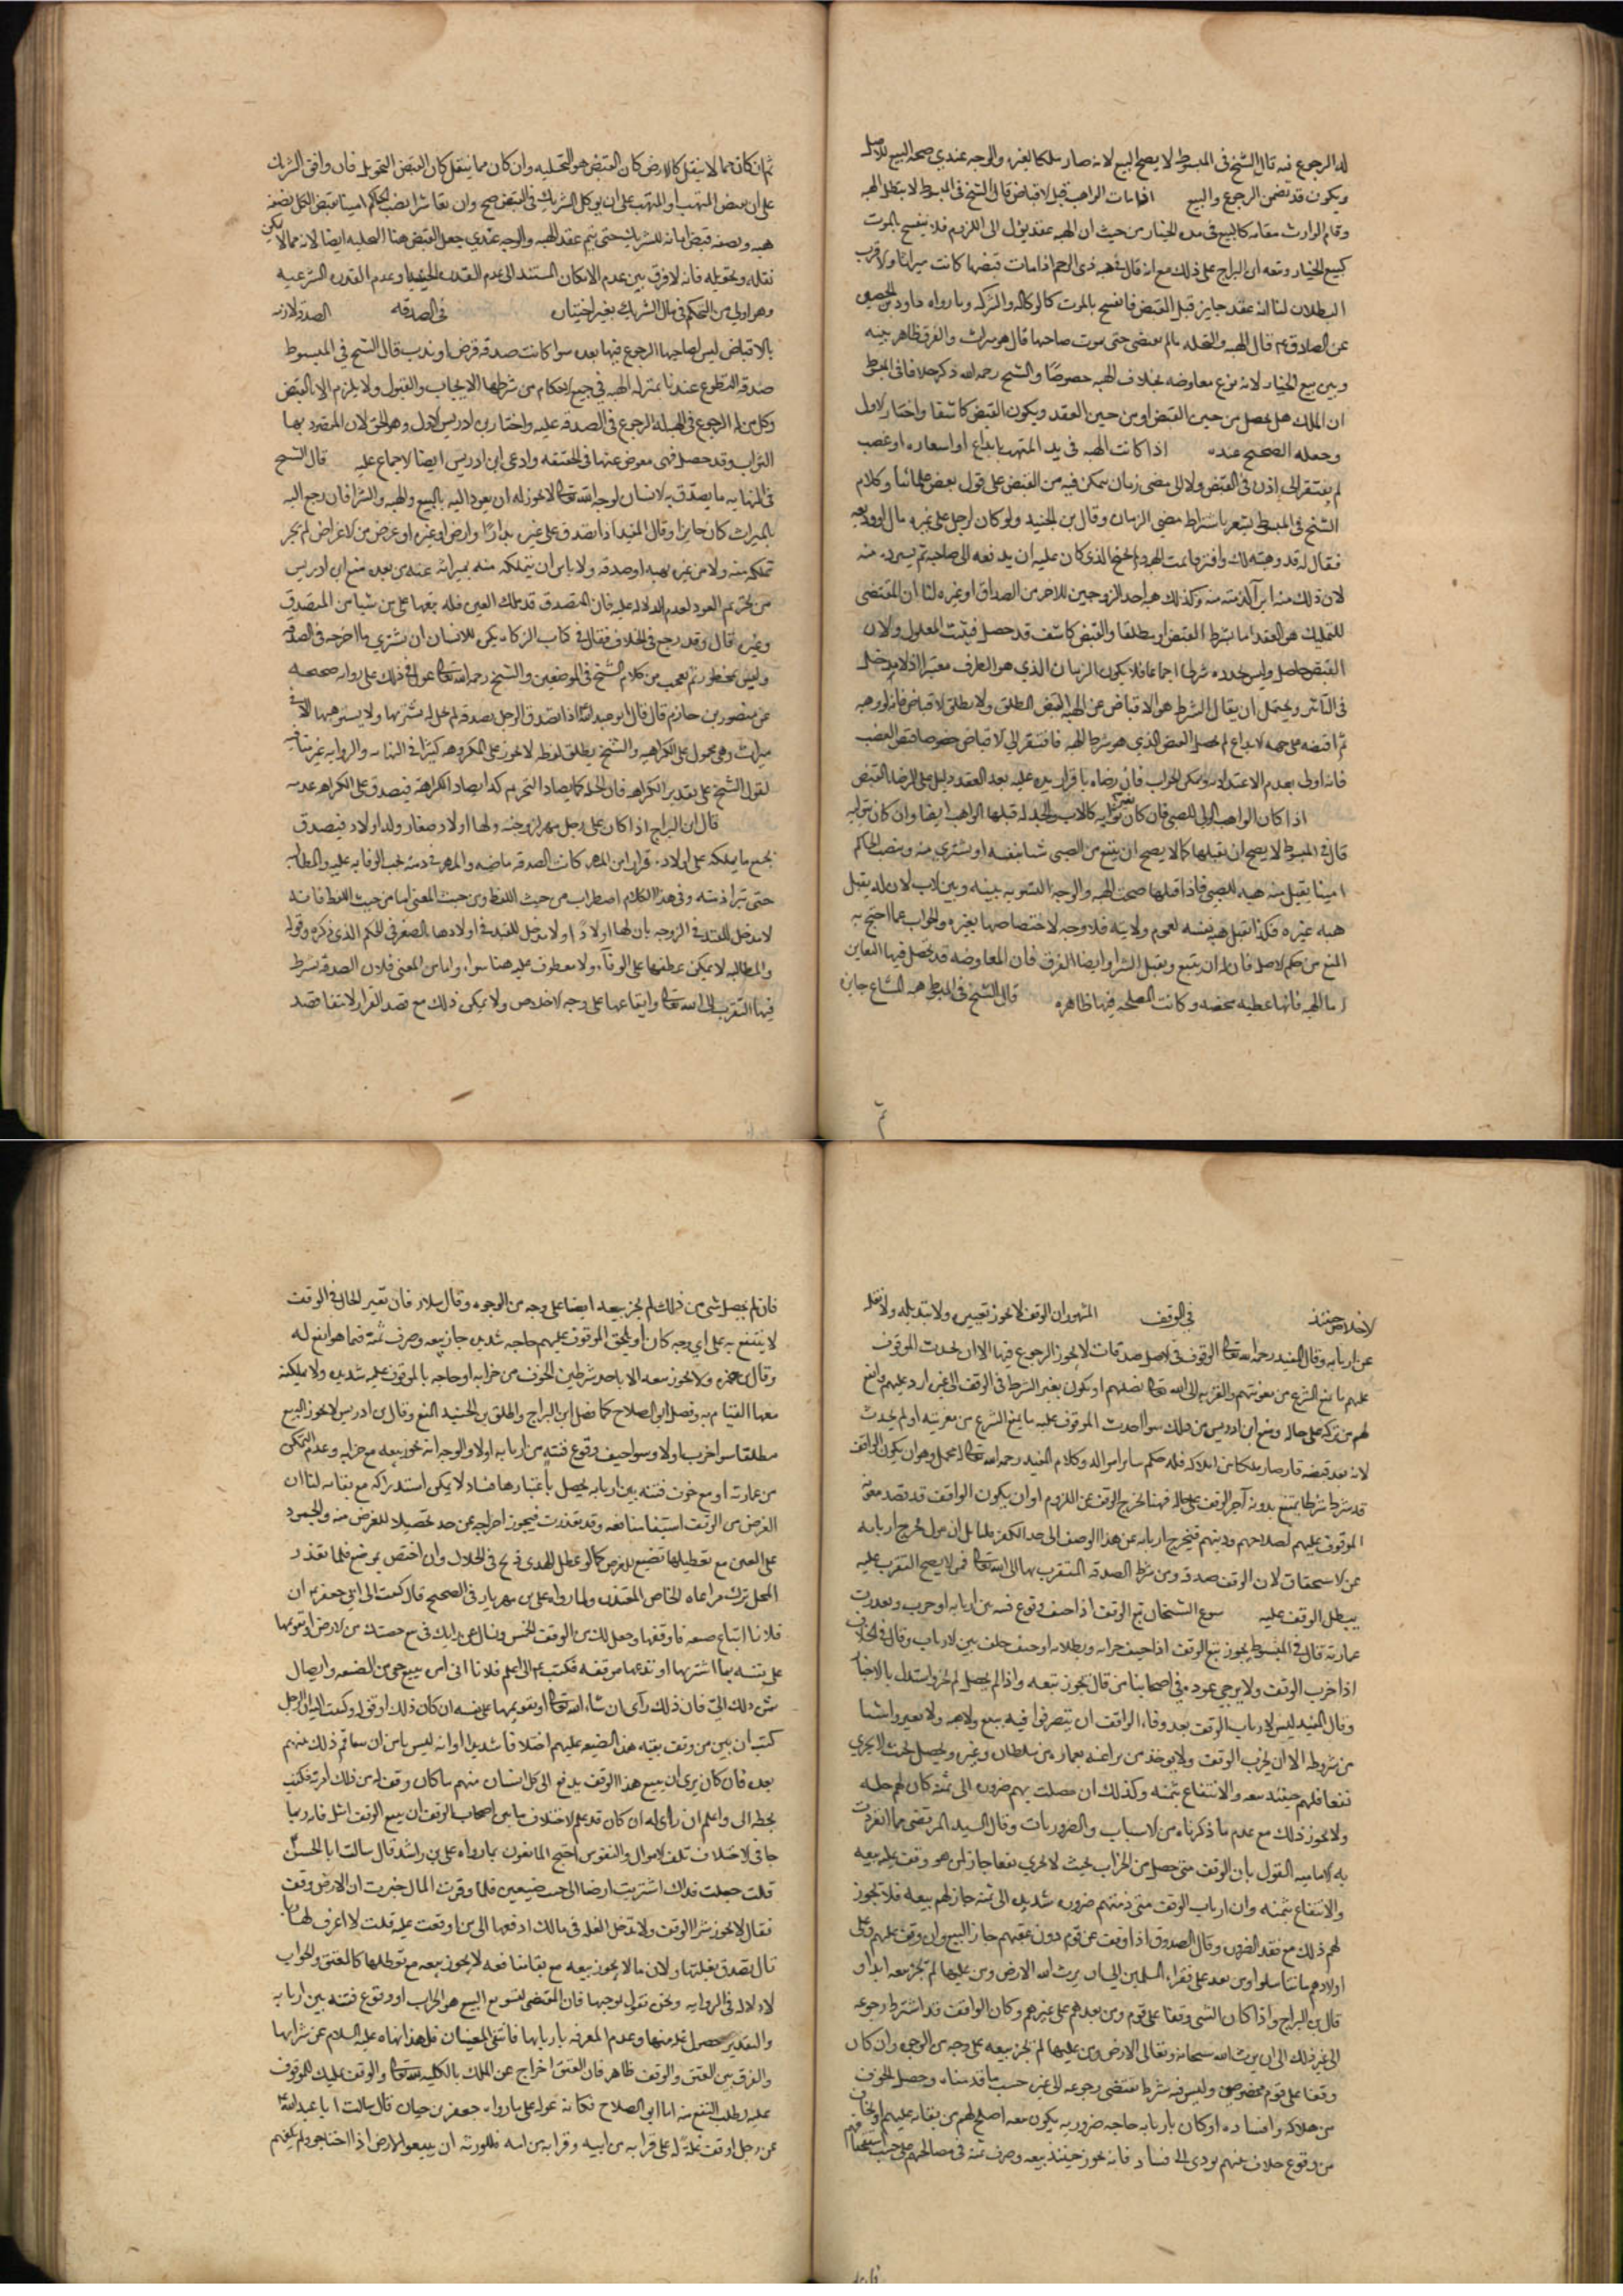 له الرجوع فيه قال الشيخ في المبسوط لا يصح البيع لانه صار ملكا لغيره والوجه عندي صحة البيع للاصل
ويكون قد تضمن الرجوع والبيع اذا مات الواهب قبل الاقباض قال الشيخ في المبسوط لا يبطل الهبه
وقام الوارث مقامه كالبيع في مدة الخيار من حيث ان الهبه عقد يؤل الى اللزوم فلا ينفسخ بالموت
كبيع الخيار وتبعه ابن البراج على ذلك مع انه قال هبه ذي الرحم اذا مات قبضها كانت ميراثا والاقرب
البطلان لنا انه عقد جايز قبل القبض فانفسخ بالموت كالوكاله والشركه وما رواه داود بن الحصين
عن الصادق ع قال الهبه والنحله ما لم يقبض حتى يموت صاحبها قال هو ميراث والفرق ظاهر بينه
وبين بيع الخيار لانه نوع معاوضه بخلاف الهبه خصوصا والشيخ رحمه الله ذكر خلافا في المبسوط
ان الملك هل يحصل من حين القبض او من حين العقد ويكون القبض كاشفا واختار الاول
وجعله الصحيح عنده اذا كانت الهبه في يد المتهب بايداع او استعاره او غصب
لم يفتقر الى اذن في القبض ولا الى مضي زمان يمكن فيه من القبض على قول بعض علمائنا وكلام
الشيخ في المبسوط يشعر باشتراط مضي الزمان وقال بن الجنيد ولو كان لرجل على غيره مال او وديعه
فقال له قد وهبته لك وافترقا تمت الهبه الذي كان عليه ان يدفعه الى صاحبه ثم يسترده منه
لان ذلك منه ابرآ لذمته منه وكذلك هبه احد الزوجين للاخر من الصداق او غيره لنا ان المقتضى
للتمليك هو العقد اما بشرط القبض او مطلقا والقبض كاشف قد حصل فيثبت المعلول ولان
القبض حاصل وليس تجدده شرطا اجماعا فلا يكون الزمان الذي هو الظرف معتبرا اذ لا مدخل له
في التاثر ويحتمل ان يقال الشرط هو الاقباض عن الهبه القبض المطلق ولا يطلق الاقباض فانه لو وهبه
ثم اقبضه على جهه الايداع لم يحصل القبض الذي هو شرط الهبه فافتقر الى الاقباض خصوصا قبض الغصب
فانه اولى بعدم الاعتداد به ويمكن الجواب فان رضاه باقرار يده عليه بعد العقد دليل على الرضا بالقبض
اذا كان الواهب الولي للصبي فان كان يتولى كالاب والجد له قبلها الواهب ايضا وان كان يتوليه
قال في المبسوط لا يصح ان يقبلها كما لا يصح ان يبتع من الصبي شيا بنفسه او يشتري منه وينصب الحاكم
امينا يقبل منه هبه للصبي فاذا قبلها صحت الهبه والوجه التسويه بينه وبين الاب لان له يقبل
هبه غيره فكذا يقبل هبه نفسه لعموم ولايته فلا وجه لاختصاصها بغيره والجواب عما احتج به
المنع من حكم الاصل فان له ان يبتع ويقبل الشرا وايضا الفرق فان المعاوضه قد يحصل فيها التغابن
اما الهبه فانها عطيه محضه وكانت المصلحه فيها ظاهره قال الشيخ في المبسوط هبه المشاع جايزه
ثم
ثم ان كان مما لا ينقل كالارض كان القبض هو التخليه وان كان مما ينقل كان القبض التحويل فان وافق الشريك
على ان يقبض المتهب او المتهب على ان يوكل الشريك في القبض صح وان تعاسرا نصب الحاكم امينا يقبض الكل نصفه
هبه ونصفه قبض امانه للشريك حتى يتم عقد الهبه والوجه عندي جعل القبض هنا التخليه ايضا لانه مما لا يمكن
نقله وتحويله فانه لا فرق بين عدم الامكان المستند الى عدم القدره الحقيقيه او عدم القدره الشرعيه
وهو اولى من التحكم في مال الشريك بغير اختياره في الصدقه الصدقه لازمه
بالاقباض ليس لصاحبها الرجوع فيها بعده سوا كانت صدقه فرض او ندب قال الشيخ في المبسوط
صدقه التطوع عندنا بمنزله الهبه في جميع الاحكام من شرطها الايجاب والقبول ولا يلزم الا بالقبض
وكل من له الرجوع في الهبه له الرجوع في الصدقه عليه واختار بن ادريس الاول وهو الحق لان المقصود بها
الثواب وقد حصل فهي معوض عنها في الحقيقه وادعى ابن ادريس ايضا الاجماع عليه قال الشيخ
في النهايه ما يصدق به الانسان لوجه الله تعالى لا يجوز له ان يعود اليه بالبيع والهبه والشرا فان رجع اليه
بالميراث كان جايزا وقال المفيد اذا تصدق على غيره بدار او ارض او غيره او عرض من الاعراض لم يجز
تملكه منه ولا من غيره بهبه او صدقه ولا باس ان يتملكه منه بميراثه عنه من بعده منع ابن ادريس
من تحريم العود لعدم الدلاله عليه فان المتصدق قد ملك العين فله بيعها على من شيا من المتصدق
وغيره قال وقد رجع في الخلاف فقال في كتاب الزكاه يكره للانسان ان يشتري ما اخرجه في الصدقه
وليس بمحظور ثم تعجب من كلام الشيخ في الموضعين والشيخ رحمه الله تعالى عول في ذلك على روايه صحيحه
عن منصور بن حازم قال قال ابو عبد الله ع اذا تصدق الرجل بصدقه لم يحل له يشتريها ولا يستوهبها الا في
ميراث وهي محمول على الكراهيه والشيخ يطلق لفظه لا يجوز على المكروه كثيرا في النهايه والروايه غير منافيه
لقول الشيخ على تقدير الكراهه فان الحل كما يضاد التحريم كذا يضاد الكراهة فيصدق على الكراهه عدمه
قال ابن البراج اذا كان على رجل مهر لزوجته ولها اولاد صغار وله اولاد فيصدق
بجميع ما يملكه على اولاده قرارا من المهر كانت الصدقه ماضيه والمهر في ذمته يجب الوفا به عليه والمطالبه
حتى تبرا ذمته وفي هذا الكلام اضطراب من حيث اللفظ ومن حيث المعنى اما من حيث اللفظ فانه
لا مدخل للقيد في الزوجه بان لها اولادا ولا مدخل للقيد في اولادها بالصغر في الحكم الذي ذكره وقوله
والمطالبه لا يمكن عطفها على الوفآء ولا معطوف عليه هنا سواه واما من المعنى فلان الصدقه شرط
فيها التقرب الى الله تعالى وايقاعها على وجه الاخلاص ولا يمكن ذلك مع قصد الفرار لانتفا قصد
الاخلاص حينئذ في الوقف المشهور ان الوقف لا يجوز تغييره ولا تبديله ولا نقله
عن اربابه وقال المفيد رحمه الله تعالى الوقوف في الاصل صدقات لا يجوز الرجوع فيها الا ان يحدث الموقوف
عليهم ما يمنع الشرع من معونتهم والقربه الى الله تعالى بصلتهم او يكون تغيير الشرط في الوقف الى غيره ارد عليهم وانفع
لهم من تركه على حاله ومنع ابن ادريس من ذلك سوا احدث الموقوف عليه ما يمنع الشرع من معونته او لم يحدث
لانه بعد قبضه قد صار ملكا من املاكه فله حكم ساير امواله وكلام المفيد رحمه الله تعالى محمل وهو ان يكون الواقف
قد شرط شرطا يمتنع بدونه اجرا الوقف على حاله فهنا يخرج الوقف عن اللزوم او ان يكون الواقف قد قصد معونه
الموقوف عليهم لصلاحهم ودينهم فيخرج اربابه عن هذا الوصف الى حد الكفر قلنا بل ان نقول يخرج اربابه
عن الاستحقاق لان الوقف صدقه ومن شرط الصدقه التقرب بها الى الله تعالى فمن لا يصح التقرب عليه
يبطل الوقف عليه سوغ الشيخان بيع الوقف اذا خيف وقوع فتنه بين اربابه او خرب وتعذرت
عمارته قال في المبسوط يجوز بيع الوقف اذا خيف خرابه وبطلانه او خيف خلف بين الارباب وقال في الخلاف
اذا خرب الوقف ولا يرجى عوده في اصحابنا من قال يجوز بيعه واذا لم يحصل لم يجز واستدل بالاخبار
وقال المفيد ليس لارباب الوقف بعد وفاه الواقف ان يتصرفوا فيه ببيع ولا هبه ولا يغيروا شيا
من شروطه الا ان يخرب الوقف ولا يوجد من يراعيه بعماره من سلطان وغيره ويحصل بحيث لا يجدي
نفعا فلهم حينئذ بيعه والانتفاع بثمنه وكذلك ان حصلت بهم ضروره الى ثمنه كان لهم حله
ولا يجوز ذلك مع عدم ما ذكرناه من الاسباب والضرورات وقال السيد المرتضى مما انفردت
به الاماميه القول بان الوقف متى حصل من الخراب بحيث لا يجدي نفعا جاز لمن هو وقف عليه بيعه
والانتفاع بثمنه وان ارباب الوقف متى دعتهم ضروره شديده الى ثمنه جاز لهم بيعه فلا يجوز
لهم ذلك مع فقد الضروره وقال الصدوق اذا وقف عن قوم دون عقبهم جاز البيع وان وقف عليهم وعلى
اولادهم ما تناسلوا ومن بعد على فقراء المسلمين الى ان يرث الله الارض ومن عليها لم يجز بيعه ابدا و
قال بن البراج واذا كان الشي وقفا على قوم ومن بعدهم على غيرهم وكان الواقف قد اشترط رجوعه
الى غير ذلك الى ان يرث الله سبحانه وتعالى الارض ومن عليها لم يجز بيعه على وجه من الوجوه وان كان
وقفا على قوم مخصوصين وليس فيه شرط يقتضي رجوعه الى غيره حسب ما قدمناه وحصل الخوف
من هلاكه وافساده او كان باربابه حاجه ضروريه يكون بيعه اصلح لهم من بقائه عليهم او يخاف
من وقوع خلاف بينهم يودي الى فساد فانه يجوز حينئذ بيعه وصرف ثمنه في مصالحهم على حسب استحقاقهم
فان لم
فان لم يحصل شى من ذلك لم يجز بيعه ايضا على وجه من الوجوه وقال سلار فان تغير الحال في الوقف
لا ينتفع به على اي وجه كان او يلحق الموقوف عليهم حاجه شديده جاز بيعه وصرف ثمنه فيما هو انفع له
وقال بن حمزه ولا يجوز بيعه الا باحد شرطين الخوف من خرابه او حاجه بالموقوف عليه شديده ولا يمكنه
معها القيام به وفصل ابو الصلاح كما فصل ابن البراج واطلق بن الجنيد المنع وقال بن ادريس لا يجوز البيع
مطلقا سوا خرب اولا وسوا خيف وقوع فتنه بين اربابه اولا والوجه انه يجوز بيعه مع خرابه وعدم التمكن
من عمارته او مع خوف فتنه بين اربابه يحصل باعتبارها فساد لا يمكن استدراكه مع بقائه لنا ان
الغرض من الوقف استيفا منافعه وقد تعذرت فيجوز اخراجه عن حده تحصيلا للغرض منه والجمود
على العين مع تعطيلها تضييع للغرض كما لو عطل الهدي ذبح في الحال وان اختص بموضع فلما تعذر
المحل ترك مراعاه الخاص المتعذر ولما رواه على بن مهزيار في الصحيح قال كتبت الى ابي جعفر ع ان
فلانا ابتاع ضيعه فاوقفها وجعل لك من الوقف الخمس ويسال عن رايك في بيع حصتك من الارض او تقويمها
على نفسه بما اشتراها او تدعها موقفه فكتب ع الى اعلم فلانا اني امره ببيع حقي من الضيعه وايصال
ثمن ذلك اليّ فان ذلك رآى ان شاء الله تعالى او يقومها على نفسه ان كان ذلك اوفق له وكتبت اليه ان الرجل
كتب ان بين من وقف بقيه هذه الضيعه عليهم اختلافا شديدا وانه ليس يامن ان يتفاقم ذلك بينهم
بعده فان كان يرى ان يبيع هذا الوقف يدفع الى كل انسان منهم ما كان وقف له من ذلك امرته فكتب
بخطه الى واعلم ان رأى له ان كان قد علم الاختلاف ما بين اصحاب الوقف ان بيع الوقف امثل فانه ربما
جا في الاختلاف تلف الاموال والنفوس احتج المانعون بما رواه علي بن راشد قال سالت ابا الحسن ع
قلت جعلت فداك اشتريت ارضا الى جنب ضيعتي فلما وفرت المال خبرت ان الارض وقف
فقال لا يجوز شرا الوقف ولا تدخل الغله في مالك ادفعها الى من اوقفت عليه قلت لا اعرف لها ربا
قال تصدق بغلتها ولان ما لا يجوز بيعه مع بقا منافعه لا يجوز بيعه مع تعطلها كالعتق والجواب
لا دلاله في الروايه ونحن نقول بموجبها فان المقتضى لتسويغ البيع هو الخراب او وقوع فتنه بين اربابه
والتقدير حصول غله منها وعدم المعرفه باربابها فانتفى المعنيان فلهذا نهاه عليه السلام عن شرائها
والفرق بين العتق والوقف ظاهر فان العتق اخراج عن الملك بالكليه لله تعالى والوقف تمليك للموقوف
عليه لطلب النفع منه اما ابو الصلاح فكانه عول على ما رواه جعفر بن حيان قال سالت ابا عبد الله ع
عن رجل اوقف غله له على قرابه من ابيه وقرابه من امه فللورثه ان يبيعوا الارض اذا احتاجوا ولم يكفهم